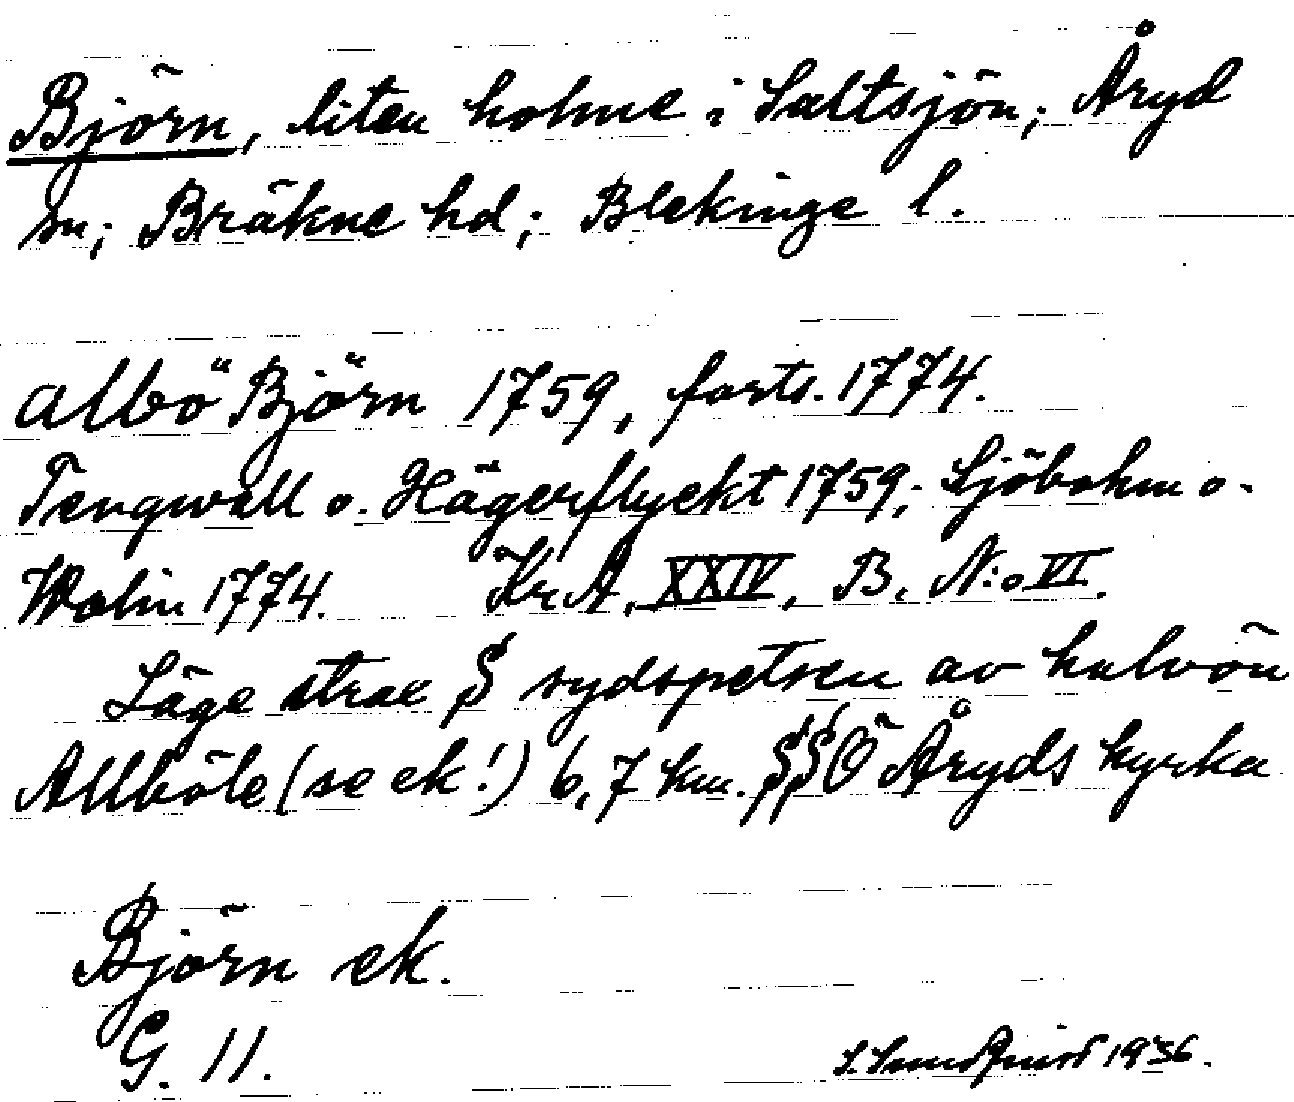 Björn, liten holme i Saltsjön; Åryd
sn; Bräkne hd; Blekinge l.
Albö Björn 1759, forts. 1774.
Tengwall o. Hägerflyckt 1759; Sjöbohm o.
Wolin 1774. Kr.A. XXIV, B. N:o VI.
Läge strax S sydspetsen av halvön
Allböle (se ek!) 6,7 km. SSÖ Åryds kyrka
Björn ek.
G. 11.
S. Sundquist 1936.